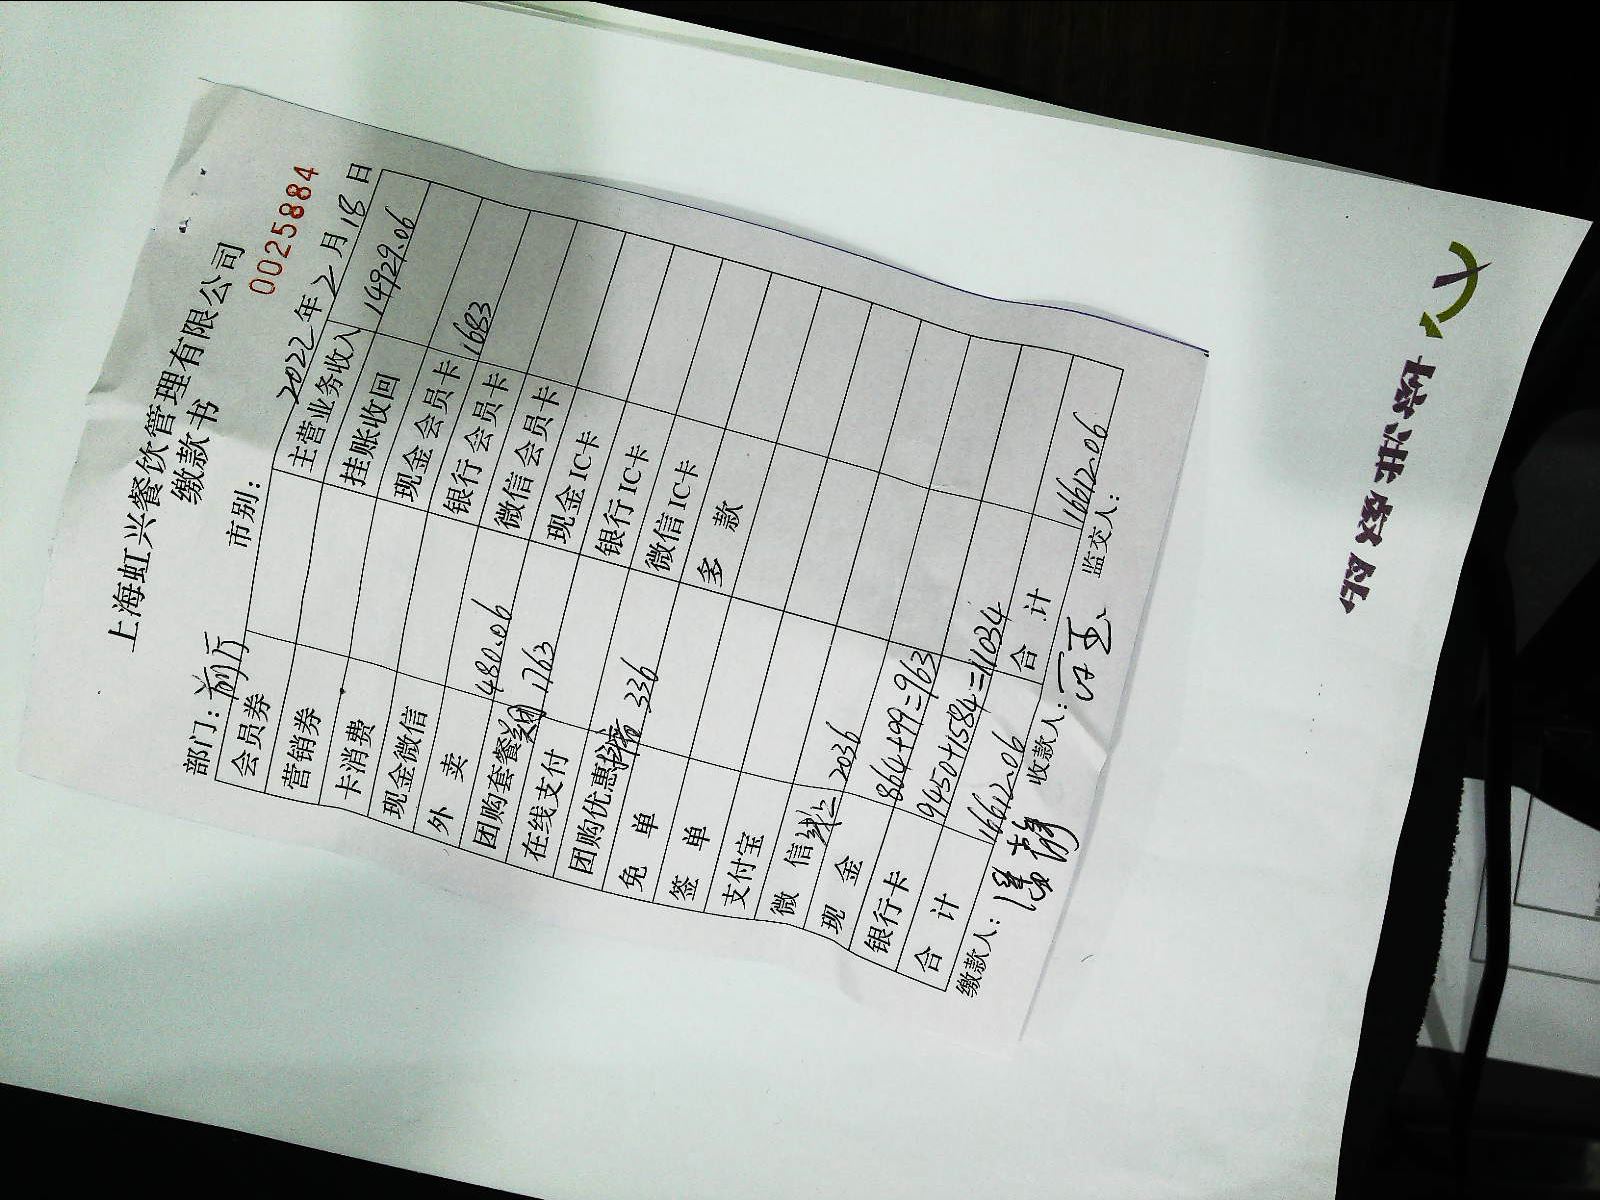 上海虹兴餐饮管理有限公司
缴款书
0025884
部门: 前厅 市别: 2022年2月18日
会员券 主营业务收入 14929.06
营销券 挂账收回
卡消费 现金会员卡 1683
现金微信 银行会员卡
外 卖 480.06 微信会员卡
团购套餐 美团 1763 现金IC卡
在线支付 银行IC卡
团购优惠 抖音 336 微信IC卡
免 单 多 款
签 单
支付宝
微 信 线上 2036
现 金 864+99=963
银行卡 9450+1584=11034
合 计 16612.06 合 计 16612.06
缴款人: 收款人: 监交人: